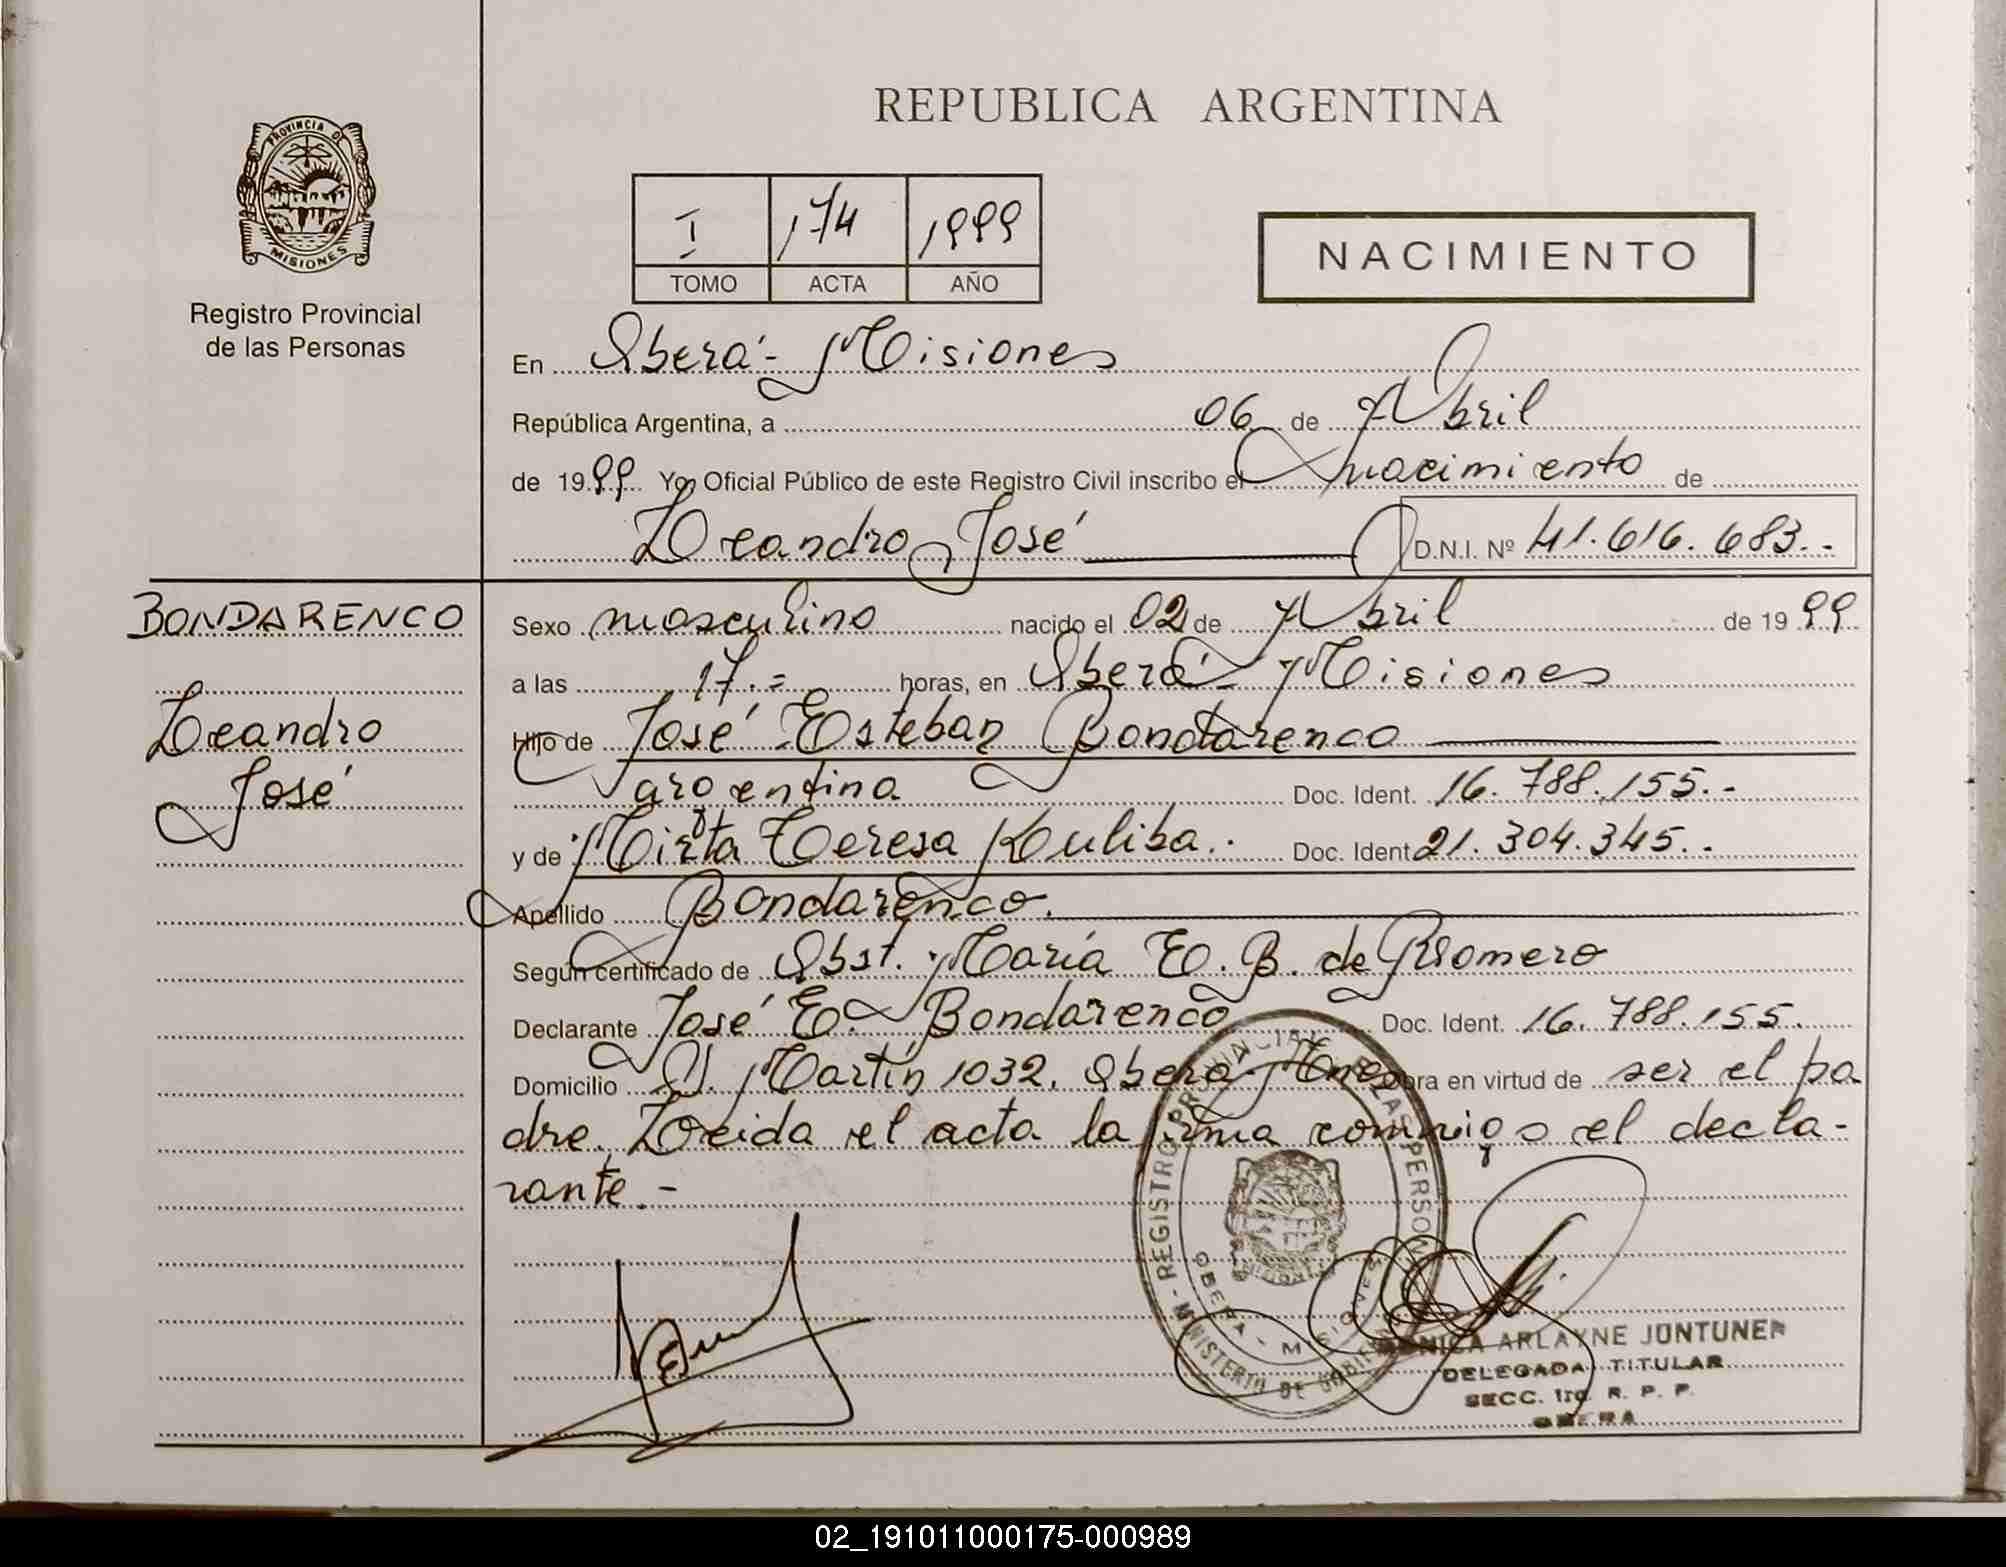 REPUBLICA ARGENTINA
PROVINCIA DE
MISIONES
Registro Provincial
de las Personas
I 174 1999
TOMO ACTA AÑO
NACIMIENTO
En Oberá - Misiones
República Argentina, a 06 de Abril
de 1999 Yo, Oficial Público de este Registro Civil inscribo el nacimiento de
Leandro José D.N.I. Nº 41.616.683.-
BONDARENCO
Leandro
José
Sexo masculino nacido el 02 de Abril de 1999
a las 17.= horas, en Oberá - Misiones
Hijo de José Esteban Bondarenco
argentina Doc. Ident. 16.788.155.-
y de Mirta Teresa Kuliba.. Doc. Ident 21.304.345.-
Apellido Bondarenco.
Según certificado de Obst. María E. B. de Romero
Declarante José E. Bondarenco Doc. Ident. 16.788.155.
Domicilio S. Martín 1032, Oberá - Mnes Obra en virtud de ser el pa
dre. Leida el acta la firma conmigo el decla-
rante.-
REGISTRO PROVINCIAL DE LAS PERSONAS
- MINISTERIO DE GOBIERNO
OBERA - MISIONES
MISIONES
ARLAYNE JUNTUNEN
DELEGADA TITULAR
SECC. 1ra. R. P. P.
OBERA
02_191011000175-000989